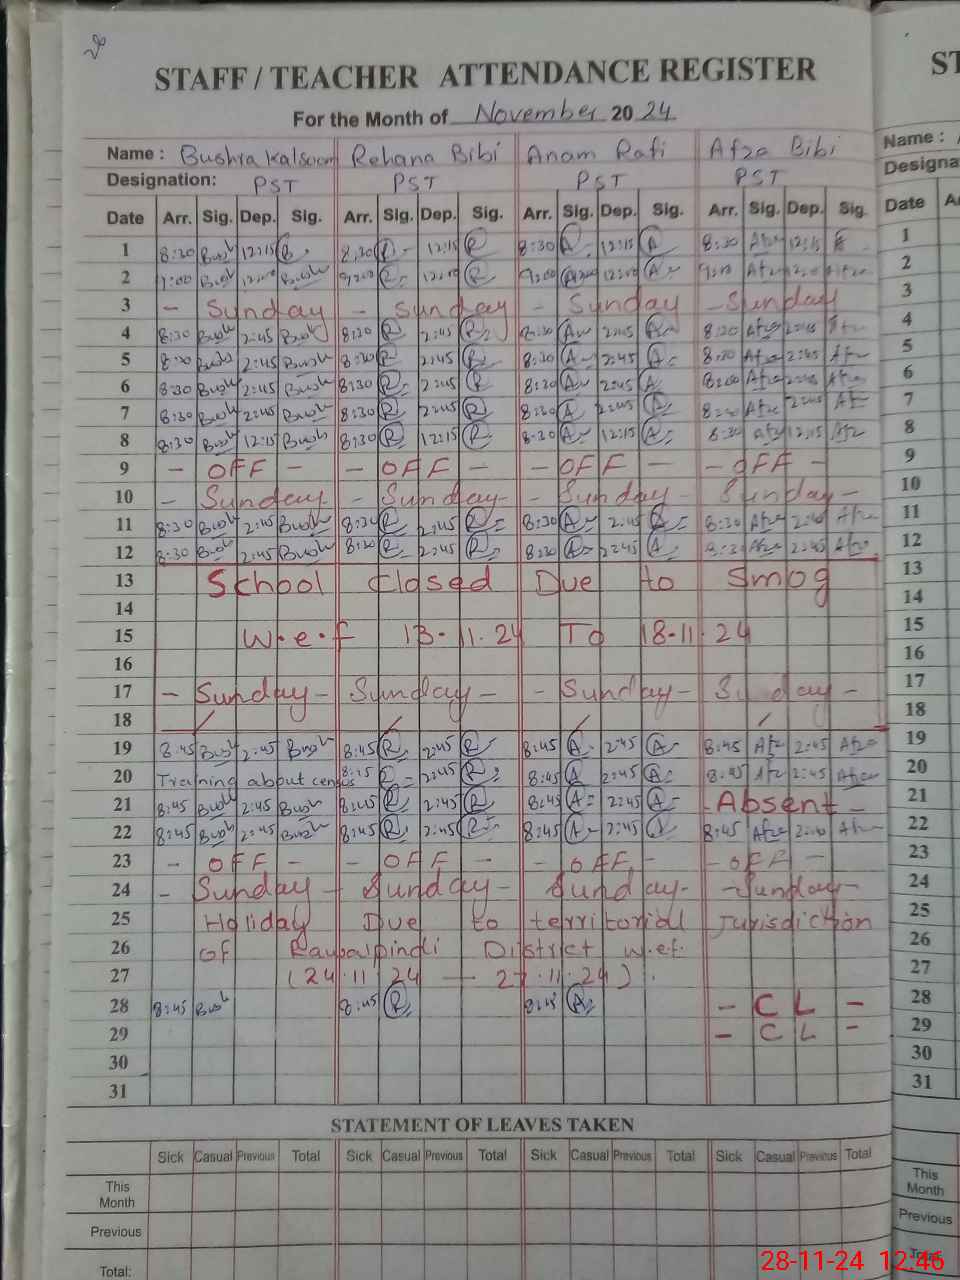 STAFF / TEACHER ATTENDANCE REGISTER ST
For the Month of November 20 24
Name : Bushra Kalsoom Rehana Bibi Anam Rafi Afza Bibi Name :
Designation: PST PST PST PST Designa
Date Arr. Sig. Dep. Sig. Arr. Sig. Dep. Sig. Arr. Sig. Dep. Sig. Arr. Sig. Dep. Sig. Date
1 8:30 Bush 12:15 B. 8:30 R 12:15 R 8:30 A 12:15 A 8:30 Afza 12:15 1
2 9:00 Bush 12:00 Bush 9:00 R 12:00 R 9:00 A 12:00 A 9:00 Afza 12:00 Afza 2
3 - Sunday - Sunday - Sunday - Sunday 3
4 8:30 Bush 2:45 Bush 8:30 R 2:45 R 8:30 A 2:45 A 8:30 Afza 2:45 Afza 4
5 8:30 Bush 2:45 Bush 8:30 R 2:45 R 8:30 A 2:45 A 8:30 Afza 2:45 Afza 5
6 8:30 Bush 2:45 Bush 8:30 R 2:45 R 8:30 A 2:45 A 8:00 Afza 2:45 Afza 6
7 8:30 Bush 2:45 Bush 8:30 R 2:45 R 8:30 A 2:45 A Afza 2:45 Afza 7
8 8:30 Bush 12:15 Bush 8:30 R 12:15 R 8:30 A 12:15 A 8:30 Afz 12:15 Afz 8
9 - OFF - - OFF - - OFF - - OFF - 9
10 - Sunday - Sunday - - Sunday - Sunday - 10
11 8:30 Bush 2:45 Bush 8:30 R 2:45 R 8:30 A 2:45 A 8:30 Afza 2:45 Afza 11
12 8:30 Bush 2:45 Bush 8:30 R 2:45 R 8:30 A 2:45 A 8:30 Afza 2:45 Afza 12
13 School Closed Due to Smog 13
14 14
15 W.e.f 13.11.24 To 18.11.24 15
16 16
17 - Sunday - Sunday - - Sunday - Sunday - 17
18 18
19 8:45 Bush 2:45 Bush 8:45 R 2:45 R 8:45 A 2:45 A 8:45 Afz 2:45 Afza 19
20 Training about census 8:45 R 2:45 R 8:45 A 2:45 A 8:45 Afz 2:45 Afza 20
21 8:45 Bush 2:45 Bush 8:45 R 2:45 R 8:45 A 2:45 A - Absent - 21
22 8:45 Bush 2:45 Bush 8:45 R 2:45 R 8:45 A 2:45 A 8:45 Afza Afza 22
23 - OFF - - OFF - - OFF - - OFF - 23
24 - Sunday - Sunday - Sunday - - Sunday - 24
25 Holiday Due to territorial Jurisdiction 25
26 of Rawalpindi District w.e.f. 26
27 (24.11.24 - 27.11.24). 27
28 8:45 Bush 8:45 R 8:45 A - C L - 28
29 - C L - 29
30 30
31 31
STATEMENT OF LEAVES TAKEN
Sick Casual Previous Total Sick Casual Previous Total Sick Casual Previous Total Sick Casual Previous Total
This Month This Month
Previous Previous
Total:
28-11-24 12:46